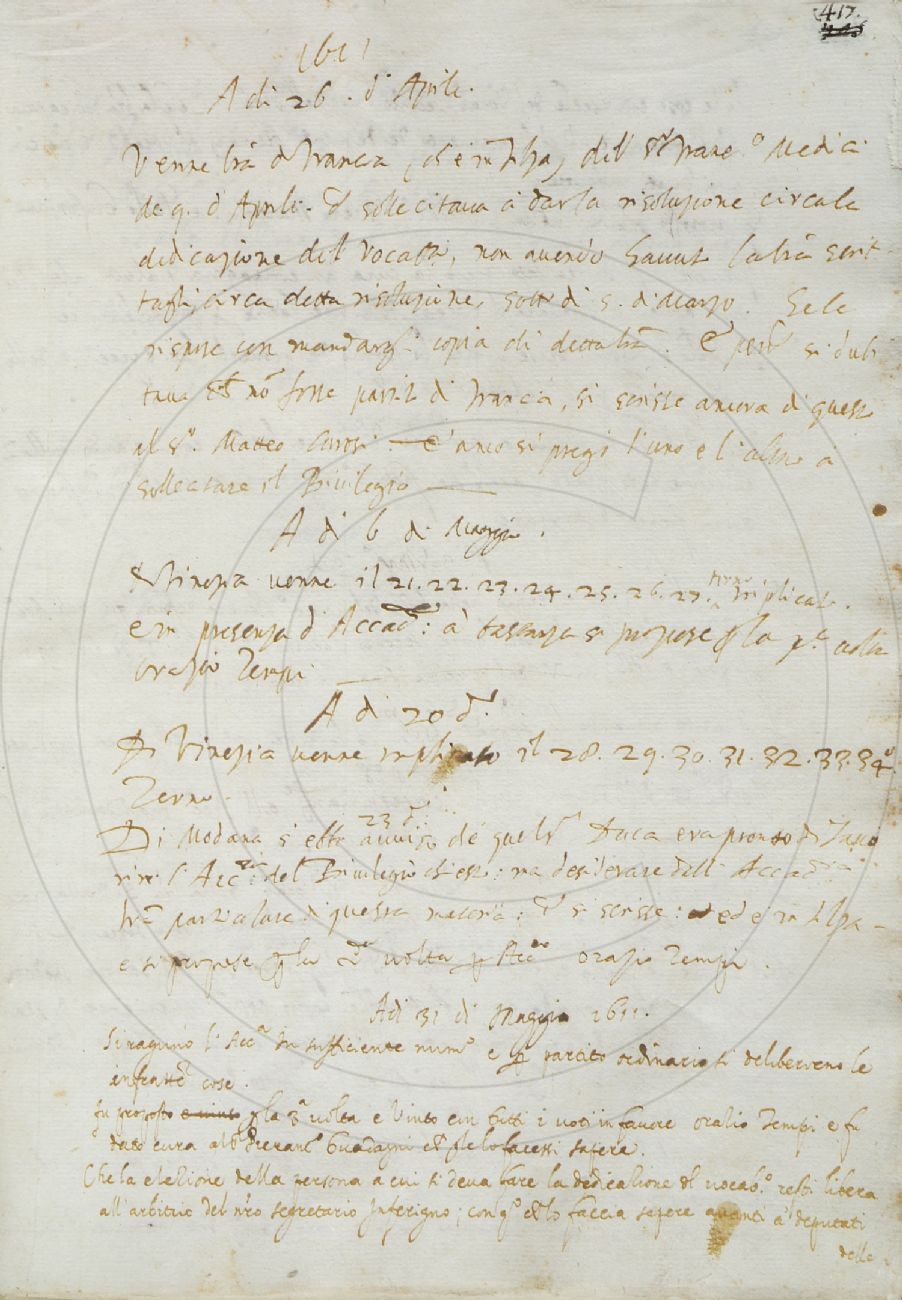 417.
1611
A dì 26. d'Aprile.
Venne l'ra di Francia, ch'è in filza, del S.r Franc.o Medici
de 9. d'Aprile. Ch' sollecitava a darla risoluzione circa la
dedicazione del Vocab.o, non avendo havut la l'ra scrit-
tagli, circa detta risoluzione, sotto dì 5. di Marzo. Se le
rispose con mandargli copia di detta l'ra. E perch' si dubi
tava ch' nō fosse partito di Francia, si scrisse ancora di questo
al S.r Matteo — e anco si pregò l'uno e l'altro a
sollecitare il Privilegio —
A dì 6 di Maggio.
Di Vinezia venne il 21. 22. 23. 24. 25. 26. 27. terno triplicato.
e in presenza d'Accad: a bastanza si propose p la p.a volta
Orazio Tempi
A dì 20 d.o
Di Vinezia venne implicato il 28. 29. 30. 31. 32. 33. 34.o
Terno.
23 d.o
Di Modana s'ebbe avviso che quel S.r Duca era pronto di favo
rire l'Acc.a del Privilegio chiesto: ma desiderare dall' Accad.a
l'ra particolare di questa materia: Ch' si scrisse: ed è in filza —
e si propose p la 2.a volta p Acc.co Orazio Tempi.
Adì 31 di Maggio 1611.
Si ragunò l'Acc.a in sufficiente num.o e p partito ordinario si deliberorno le
infratte cose.
Fu proposto e vinto p la 3.a volta e vinto con tutti i voti in favore Oratio Tempi e fu
dato cura al Guadagni ch' gle lo facessi sapere.
Che la elezione della persona a cui si deva fare la dedicatione del vocab.o resti libera
all' arbitrio del n'ro segretario Inferigno; con q.o ch' lo faccia sapere avanti a' deputati
delle